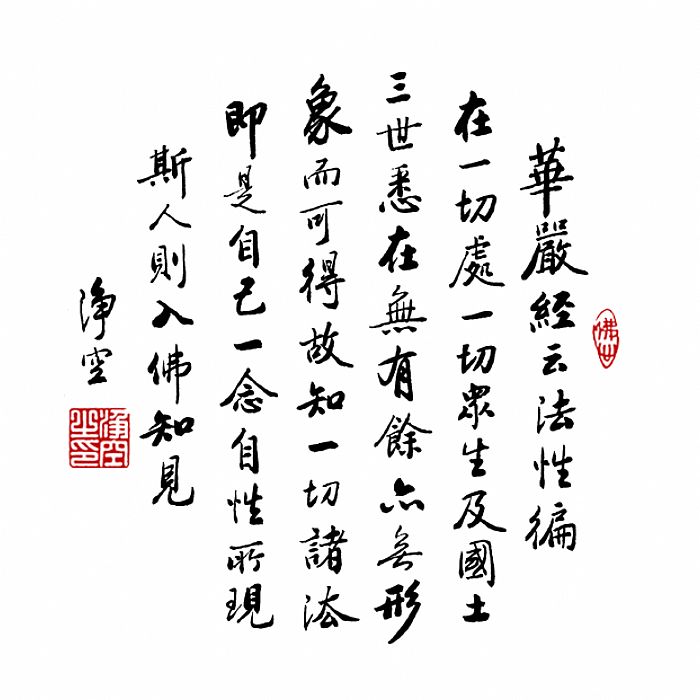 華嚴經云法性徧
在一切處一切眾生及國土
三世悉在無有餘亦無形
象而可得故知一切諸法
即是自己一念自性所現
斯人則入佛知見
淨空
淨空之印